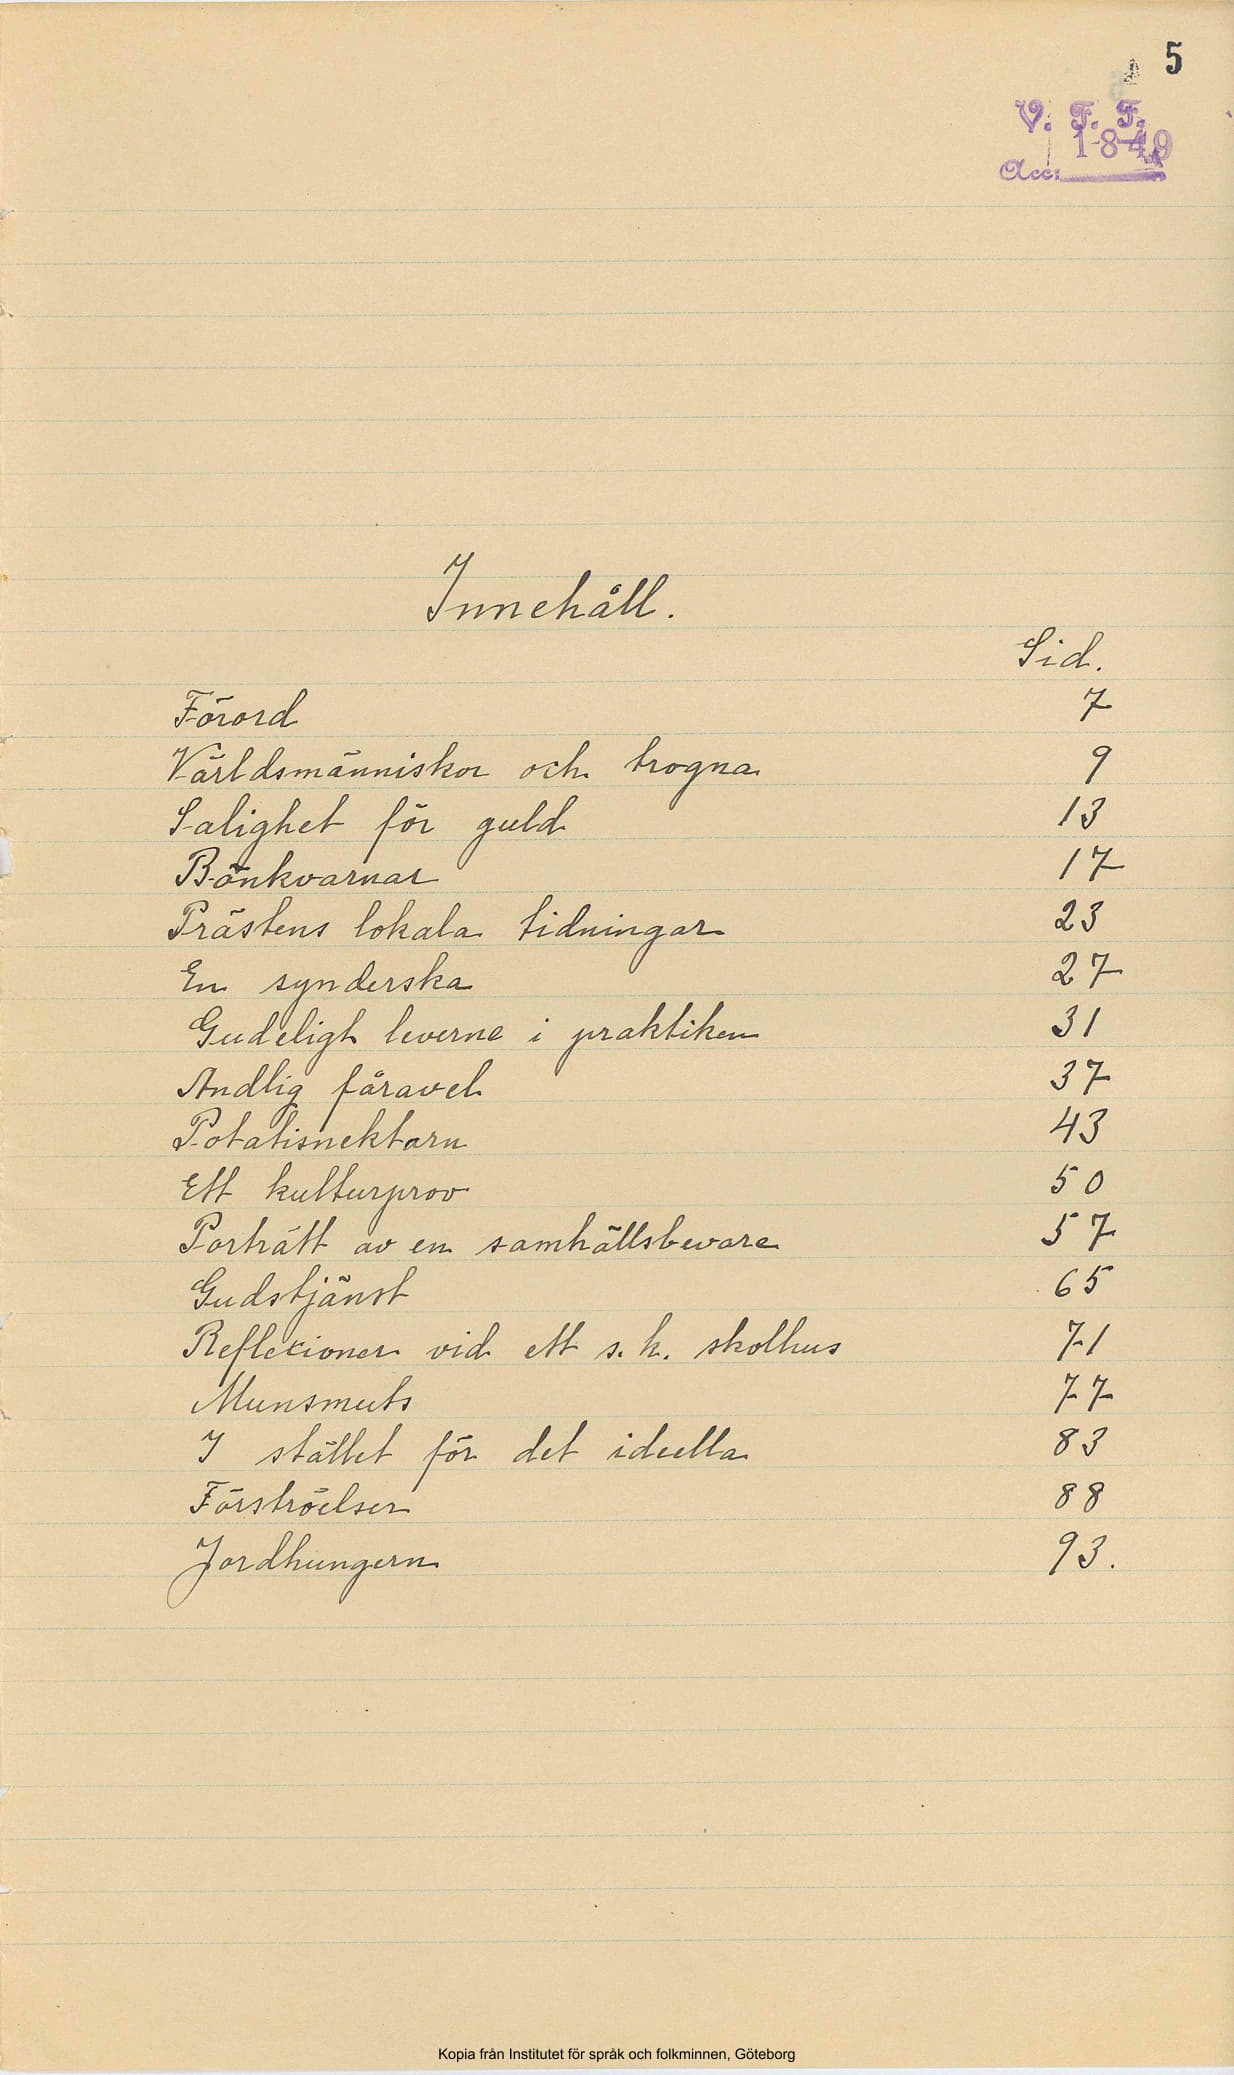 5
V. F. F.
1849
Acc:
Innehåll.
Sid.
Förord 7
Världsmänniskor och trogna 9
Salighet för guld 13
Bönkvarnar 17
Prästens lokala tidningar 23
En synderska 27
Gudeligt leverne i praktiken 31
Andlig fåravel 37
Potatisnektarn 43
Ett kulturprov 50
Porträtt av en samhällsbevare 57
Gudstjänst 65
Reflexioner vid ett s. k. skolhus 71
Munsmuts 77
I stället för det ideella 83
Förströelser 88
Jordhungern 93.
Kopia från Institutet för språk och folkminnen, Göteborg